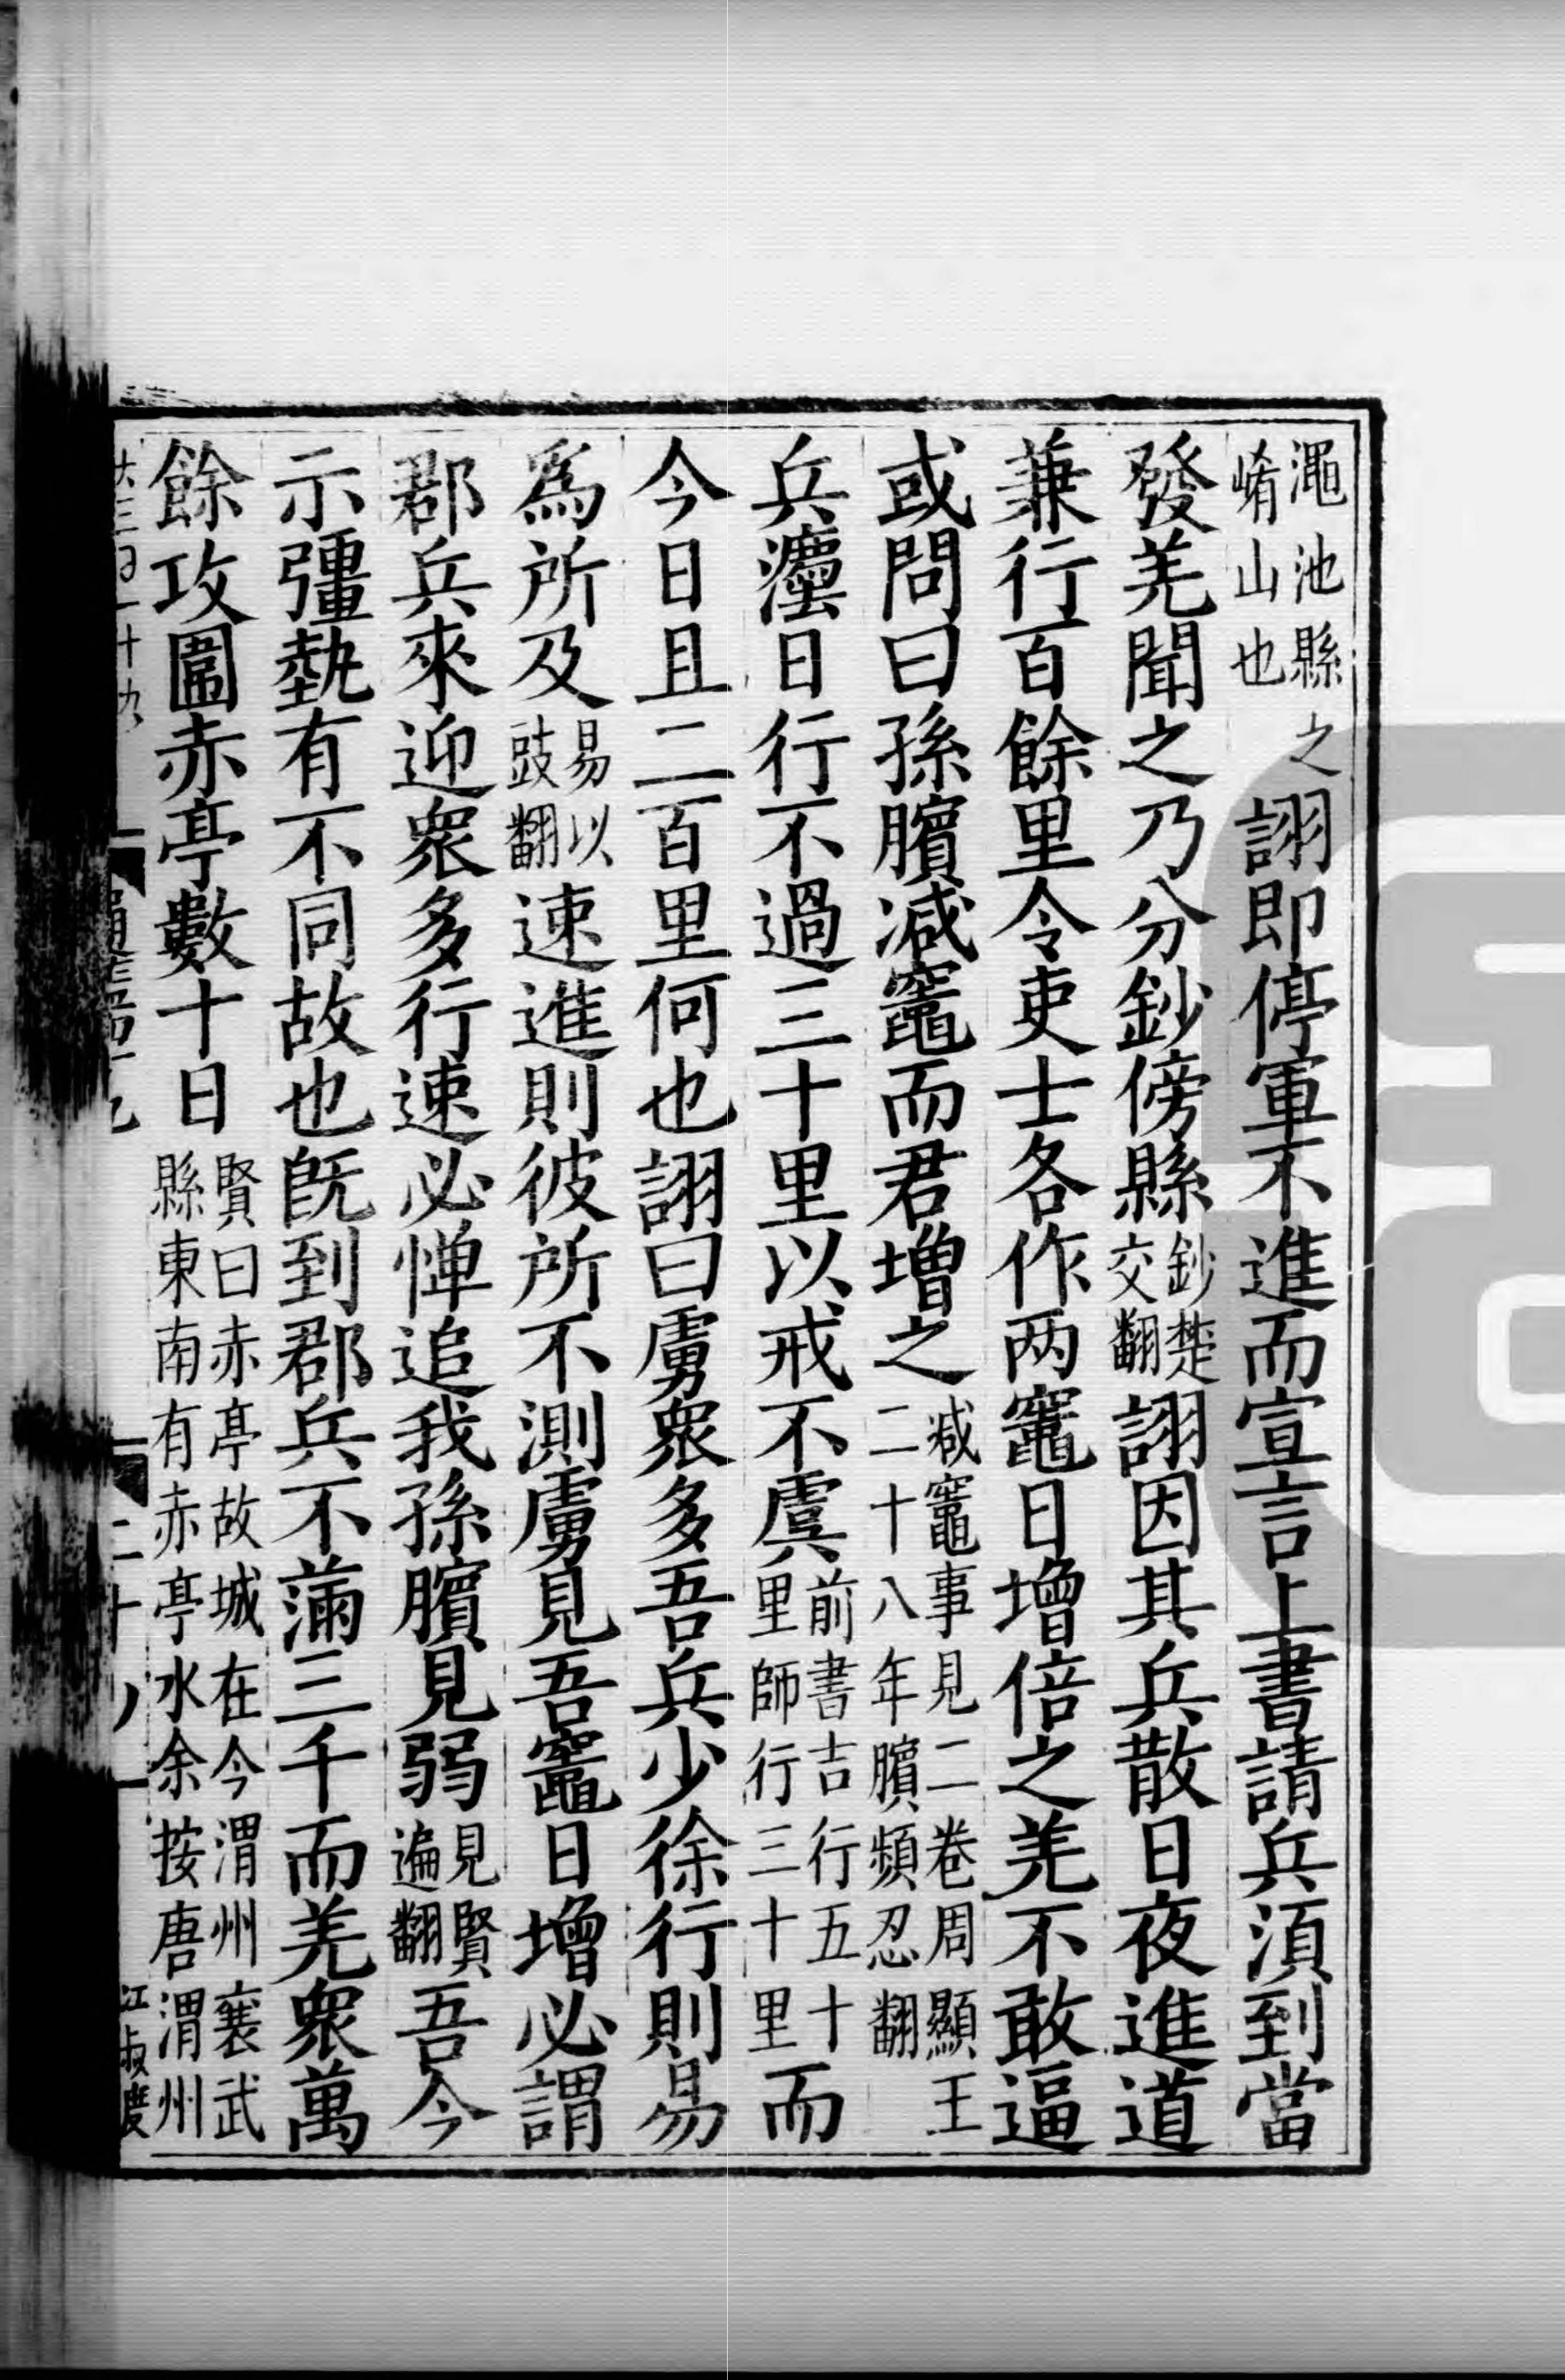 澠池縣之崤山也詡即停軍不進而宣言上書請兵須到當
發羌聞之乃分鈔傍縣鈔楚交翻詡因其兵散日夜進道
兼行百餘里令吏士各作两竈日增倍之羌不敢逼
或問曰孫臏减竈而君増之减竈事見二卷周顯王二十八年臏頻忍翻
兵灋日行不過三十里以戒不虞前書吉行五十里師行三十里而
今日且二百里何也詡曰虜衆多吾兵少徐行則易
爲所及易以豉翻速進則彼所不測虜見吾竈日增必謂
郡兵來迎衆多行速必憚追我孫臏見弱見賢遍翻吾今
示彊埶有不同故也旣到郡兵不滿三千而羌衆萬
餘攻圍赤亭數十日賢曰赤亭故城在今渭州襄武縣東南有赤亭水余按唐渭州